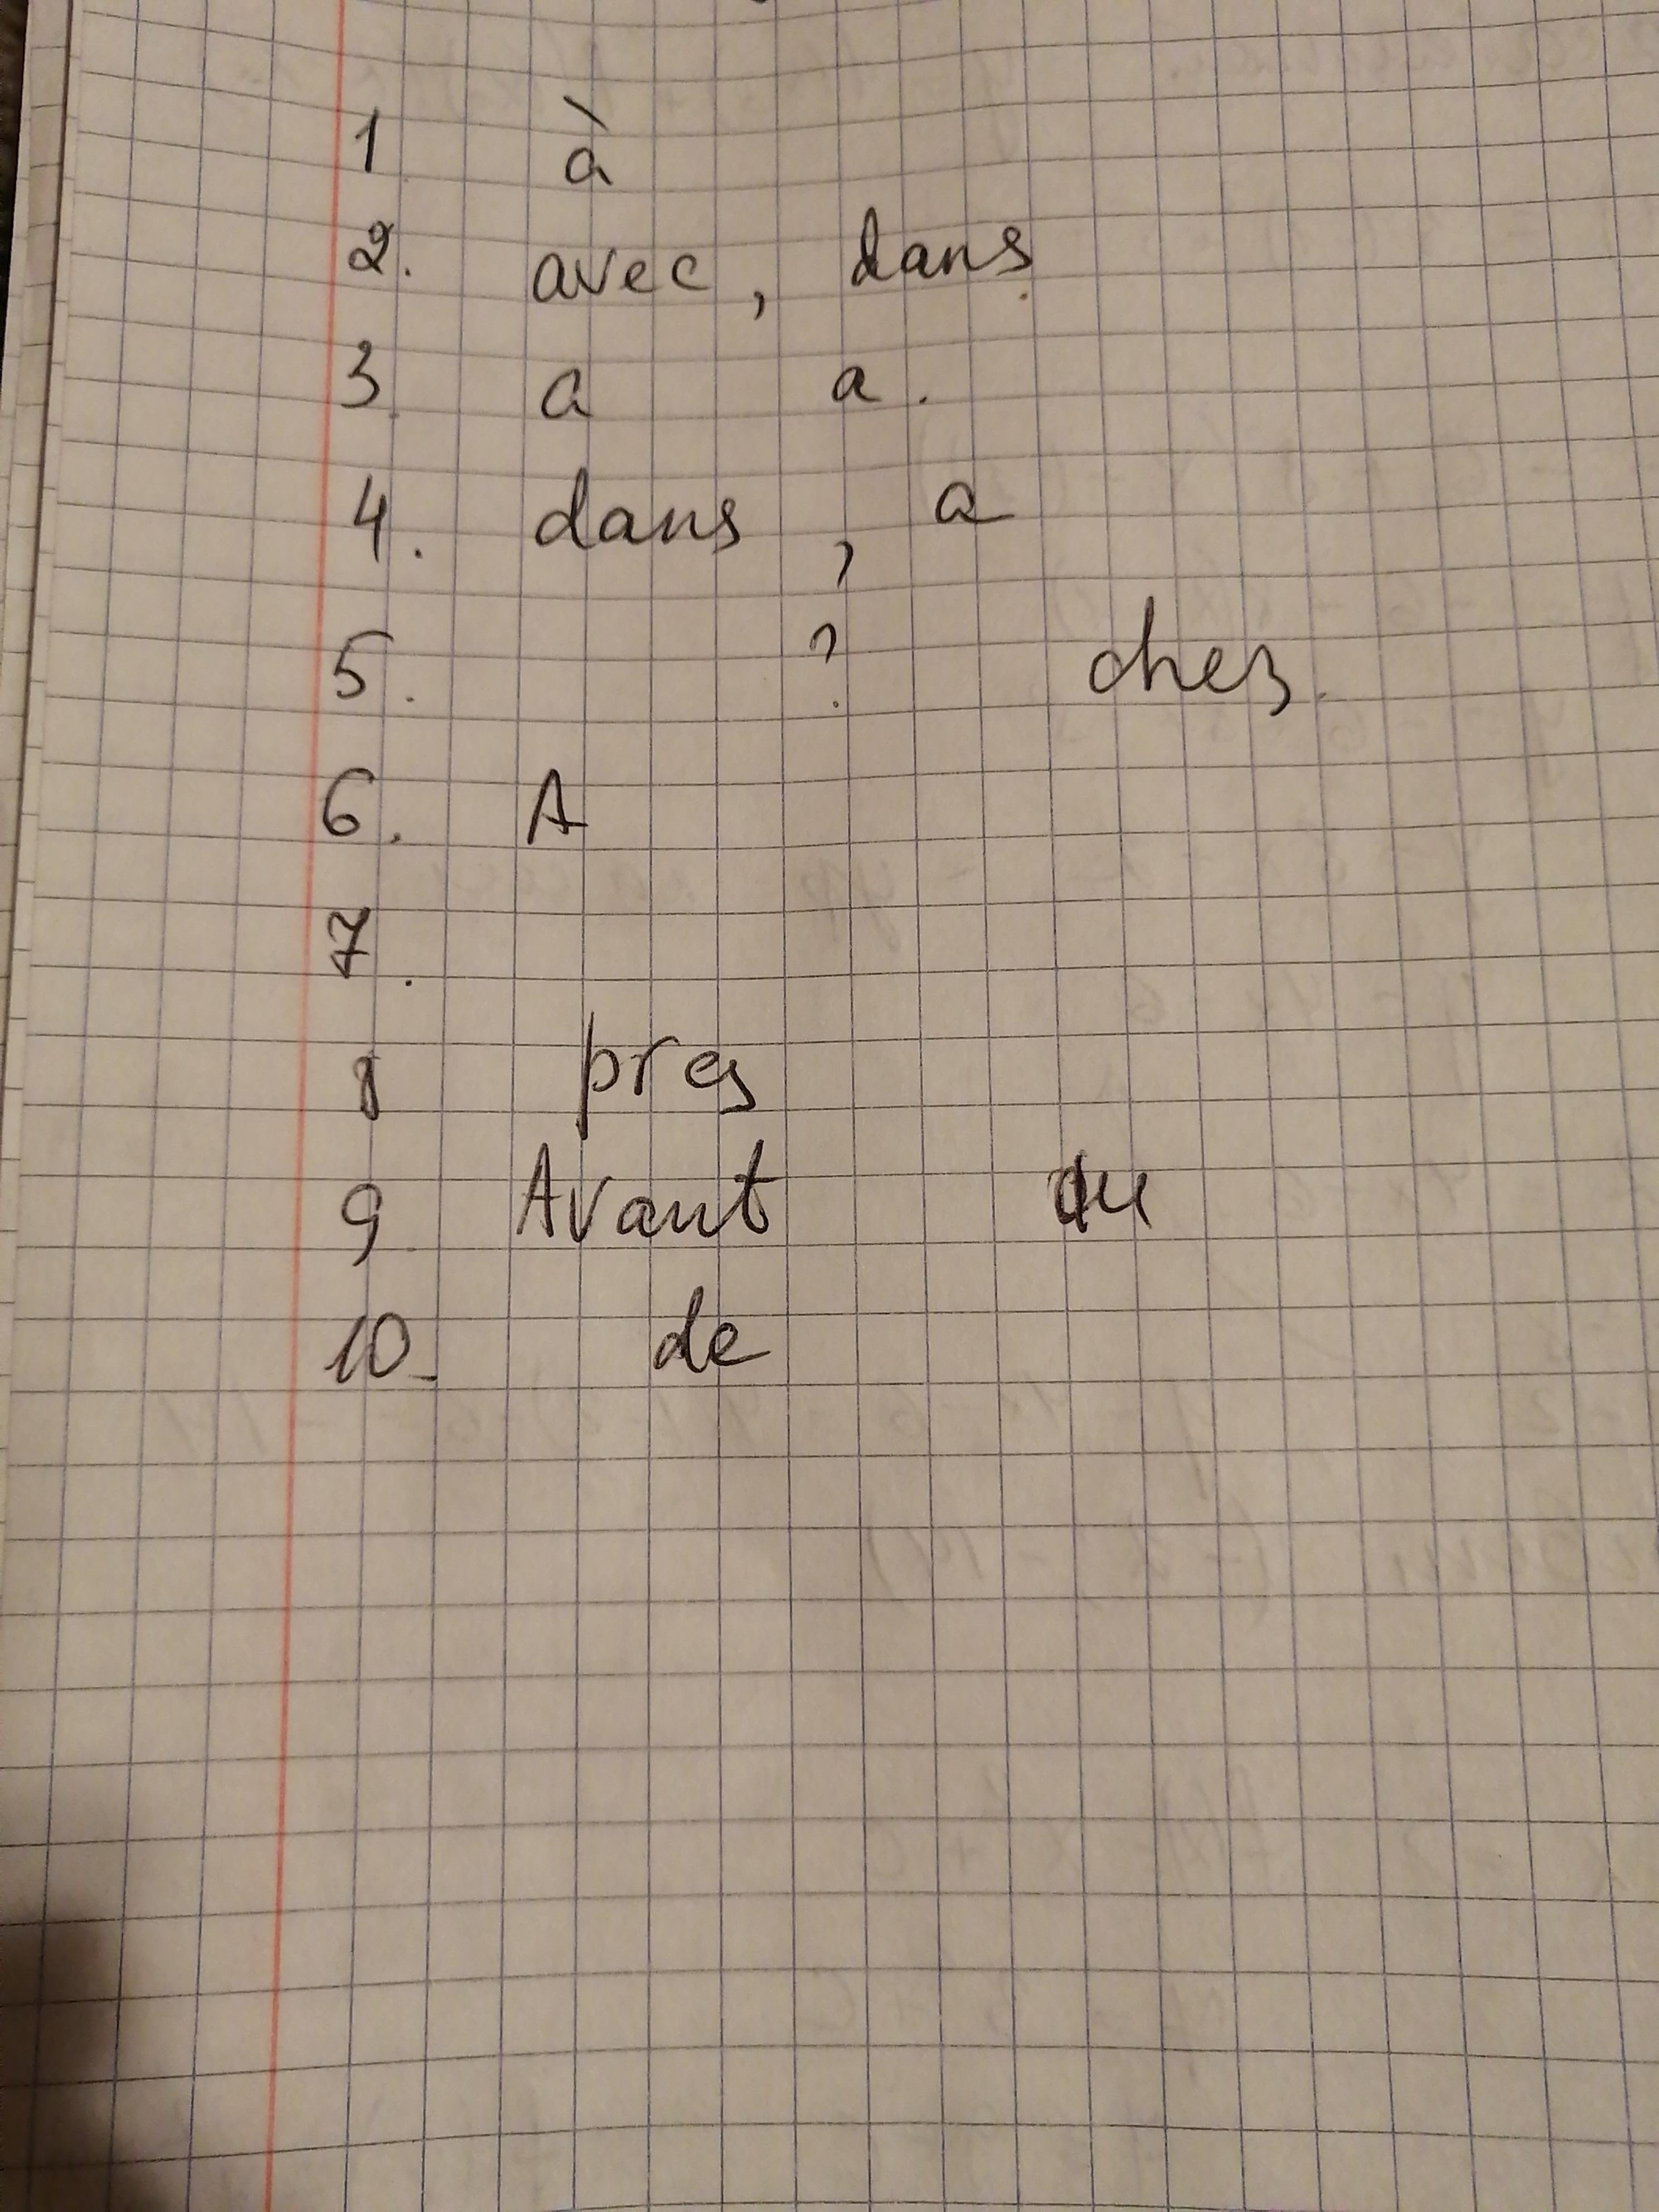 1. à
2. avec, dans
3. a a.
4. dans, a
5. ? chez.
6. A
7.
8 pres
9 Avant du
10. de